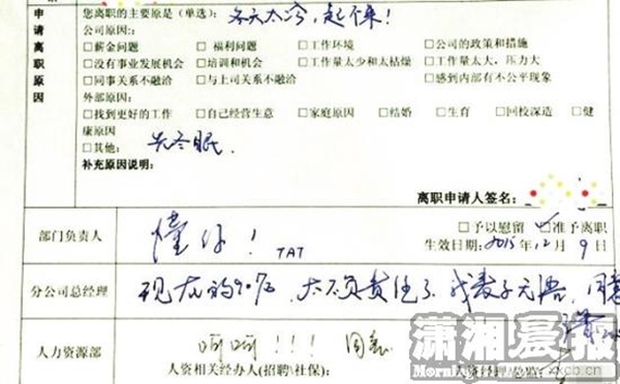 申请离职原因
您离职的主要原是(单选): 冬天太冷,起不来!
公司原因:
□薪金问题 □福利问题 □工作环境 □公司的政策和措施
□没有事业发展机会 □培训和机会 □工作量太少和太枯燥 □工作量太大,压力大
□同事关系不融洽 □与上司关系不融洽 □感到内部有不公平现象
外部原因:
□找到更好的工作 □自己经营生意 □家庭原因 □结婚 □生育 □回校深造 □健
康原因
□其他: 冬眠.
补充原因说明:
离职申请人签名:
部门负责人 懂你! TAT □予以慰留 □准予离职
生效日期: 2015年12月9日
分公司总经理 现在的90后,太不负责任了.我表示无语.同意
人力资源部 呵呵!!! 同意
人资相关经办人(招聘\社保): 人资经理
潇湘晨报
Morning
zxcb.cn